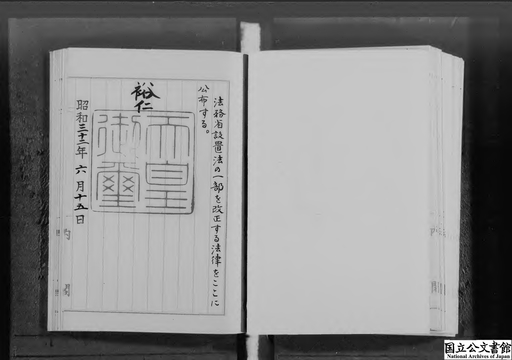 法務省設置法の一部を改正する法律をここに
公布する。
裕仁
天皇
御璽
昭和三十二年六月十五日
内閣
国立公文書館
National Archives of Japan